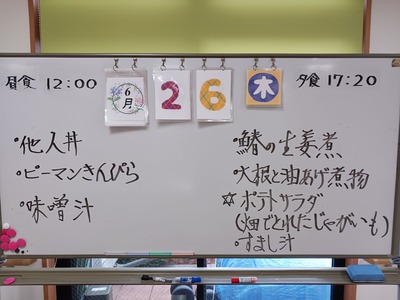 昼食 12:00
6月
2
6
木
夕食 17:20
・他人丼
・ピーマンきんぴら
・味噌汁
・鰆の生姜煮
・大根と油あげ煮物
☆ポテトサラダ
(畑でとれたじゃがいも)
・すまし汁